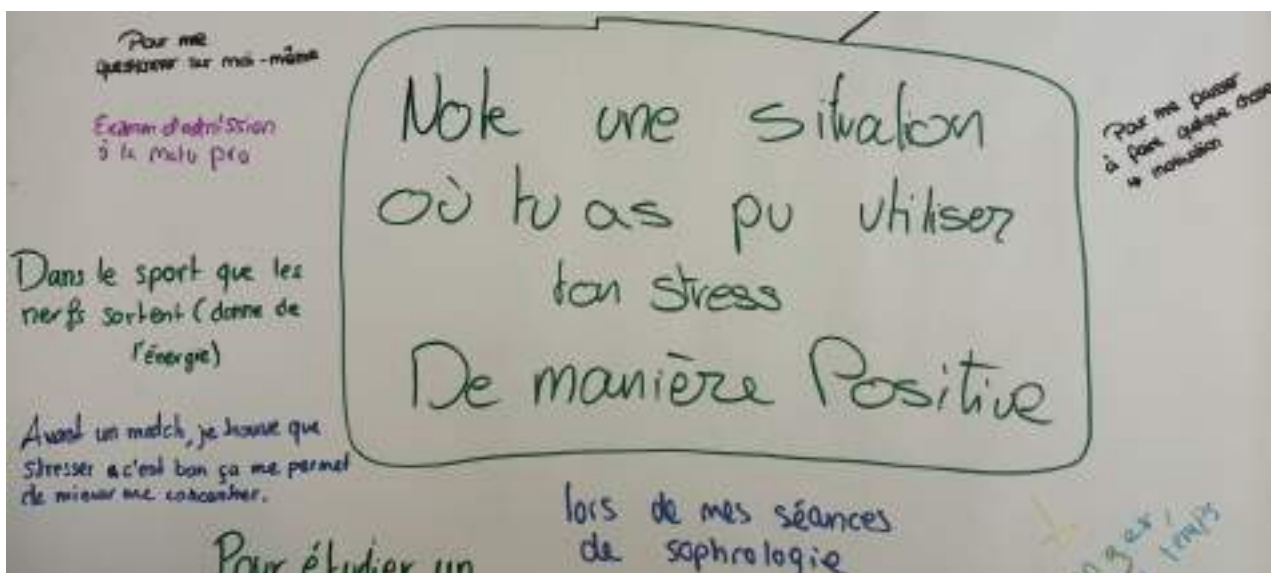 Pour me
questionner sur moi-même
Examen d'admission
à la matu pro
Dans le sport que les
nerfs sortent (donne de
l'énergie)
Avant un match, je trouve que
stresser c'est bon ça me permet
de mieux me concentrer.
Note une situation
où tu as pu utiliser
ton stress
De manière Positive
Pour me pousser
à faire quelque chose
→ motivation
Pour étudier un
lors de mes séances
de sophrologie
temps